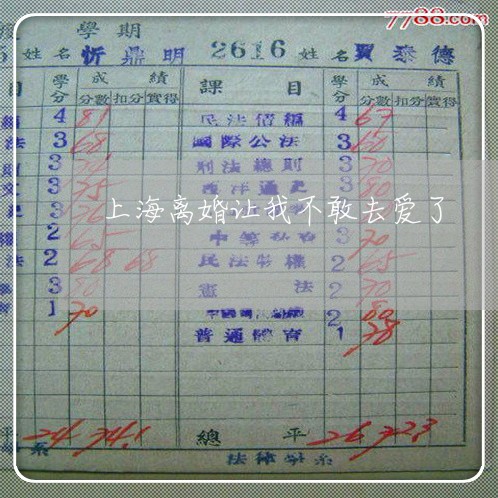 7788.com
學期
姓名 忻鼎明 2616 姓名 賈泰德
目 學分 成績 課目 學分 成績
分數 扣分 實得 分數 扣分 實得
4 81 民法債編 4 67
法 3 68 國際公法 3 60
3 刑法總則 3 70
3 75 西洋通史 3 80
3
上海离婚让我不敢去爱了
2 65 3 70
法 2 68 68 民法物權 2 65
3 80 憲法 2 70
1 70 2 80
普通體育 1 78
24 74.1 總平 26 72.3
系 法律學系